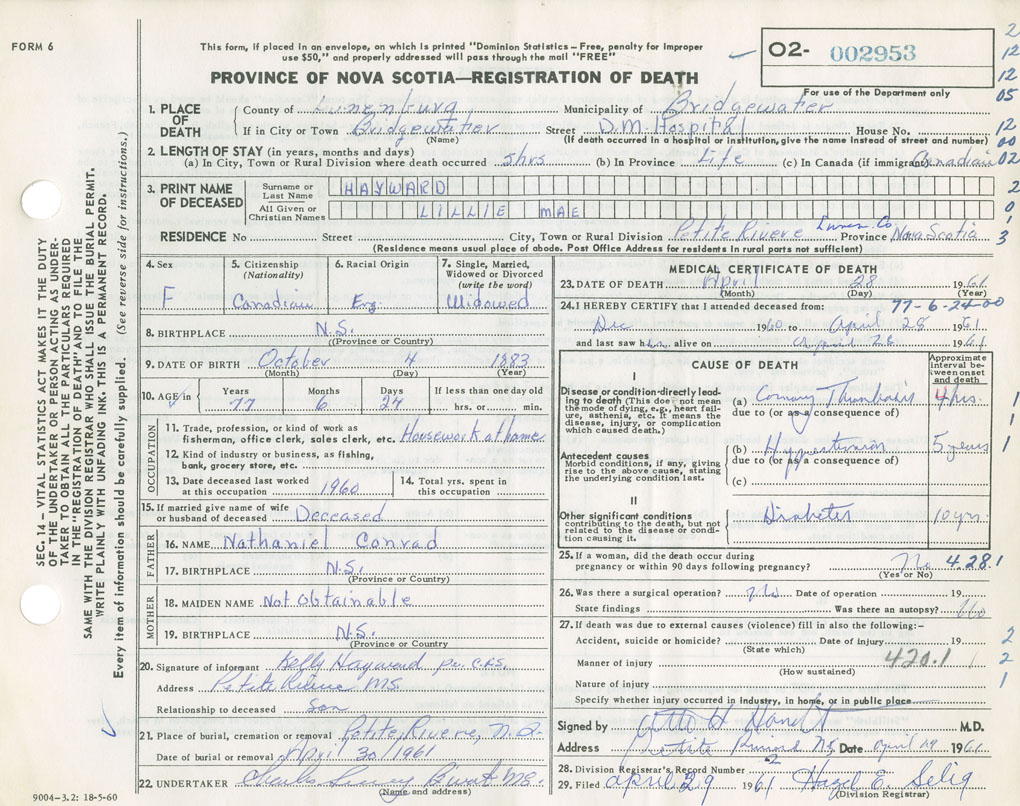 FORM 6
This form, if placed in an envelope, on which is printed "Dominion Statistics – Free, penalty for improper
use $50," and properly addressed will pass through the mail "FREE"
O2- 002953
For use of the Department only
PROVINCE OF NOVA SCOTIA—REGISTRATION OF DEATH
1. PLACE OF DEATH
County of Lunenburg Municipality of Bridgewater
If in City or Town Bridgewater Street D.M. Hospital House No.
(Name) (If death occurred in a hospital or institution, give the name instead of street and number)
2. LENGTH OF STAY (in years, months and days)
(a) In City, Town or Rural Division where death occurred 5hrs (b) In Province Life (c) In Canada (if immigrant) Canadian
3. PRINT NAME OF DECEASED
Surname or Last Name HAYWARD
All Given or Christian Names LILLIE MAE
RESIDENCE No. Street City, Town or Rural Division Petite Riviere Lunen. Co. Province Nova Scotia
(Residence means usual place of abode. Post Office Address for residents in rural parts not sufficient)
4. Sex F
5. Citizenship (Nationality) Canadian
6. Racial Origin Eng.
7. Single, Married, Widowed or Divorced (write the word) Widowed
8. BIRTHPLACE N.S.
(Province or Country)
9. DATE OF BIRTH October 4 1883
(Month) (Day) (Year)
10. AGE in Years 77 Months 6 Days 24 If less than one day old hrs. or min.
OCCUPATION
11. Trade, profession, or kind of work as fisherman, office clerk, sales clerk, etc. Housework at home
12. Kind of industry or business, as fishing, bank, grocery store, etc.
13. Date deceased last worked at this occupation 1960
14. Total yrs. spent in this occupation
15. If married give name of wife or husband of deceased Deceased
FATHER
16. NAME Nathaniel Conrad
17. BIRTHPLACE N.S.
(Province or Country)
MOTHER
18. MAIDEN NAME Not Obtainable
19. BIRTHPLACE N.S.
(Province or Country)
20. Signature of informant Kelly Hayward
Address Petite Riviere N.S.
Relationship to deceased son
21. Place of burial, cremation or removal Petite Riviere, N.S.
Date of burial or removal April 30/1961
22. UNDERTAKER Charles
(Name and address)
9004-3.2: 18-5-60
MEDICAL CERTIFICATE OF DEATH
23. DATE OF DEATH April 28 1961
(Month) (Day) (Year)
24. I HEREBY CERTIFY that I attended deceased from: 77-6-24-00
Dec 1960 to April 28 1961
and last saw her alive on April 28 1961
CAUSE OF DEATH
Approximate interval between onset and death
I
Disease or condition directly leading to death (This does not mean the mode of dying, e.g., heart failure, asthenia, etc. It means the disease, injury, or complication which caused death.)
(a) Coronary Thrombosis 4 hrs.
due to (or as a consequence of)
Antecedent causes
Morbid conditions, if any, giving rise to the above cause, stating the underlying condition last.
(b) Hypertension 5 years
due to (or as a consequence of)
(c)
II
Other significant conditions contributing to the death, but not related to the disease or condition causing it.
Diabetes 10 yrs.
25. If a woman, did the death occur during pregnancy or within 90 days following pregnancy? No 4.28.1
(Yes or No)
26. Was there a surgical operation? No Date of operation 19
State findings Was there an autopsy? No
27. If death was due to external causes (violence) fill in also the following:–
Accident, suicide or homicide? Date of injury 19
(State which)
Manner of injury 420.1
(How sustained)
Nature of injury
Specify whether injury occurred in industry, in home, or in public place
Signed by M.D.
Address Petite Riviere N.S. Date April 29 1961
28. Division Registrar's Record Number 2
29. Filed April 29 1961 Hazel E. Selig
(Division Registrar)
SEC. 14 – VITAL STATISTICS ACT MAKES IT THE DUTY
OF THE UNDERTAKER OR PERSON ACTING AS UNDER-
TAKER TO OBTAIN ALL THE PARTICULARS REQUIRED
IN THE "REGISTRATION OF DEATH" AND TO FILE THE
SAME WITH THE DIVISION REGISTRAR WHO SHALL ISSUE THE BURIAL PERMIT.
WRITE PLAINLY WITH UNFADING INK. THIS IS A PERMANENT RECORD.
Every item of Information should be carefully supplied. (See reverse side for instructions.)
2
12
12
05
12
00
02
2
0
1
3
1
1
1
2
2
1